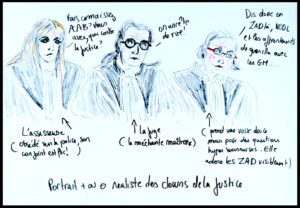 Vous connaissez
ACAB? Vous
avez quoi contre
la police?
on arrête
de rire!
Dis donc on
ZADile, NDDL
et les affrontements
de guerilla avec
les GM.
L'assesseure
(obsédé sur la police, son
conjoint est flic!)
la juge
(la méchante maîtresse)
(prend une voix douce
mais pose des questions
hyper tournées. Elle
adore les ZAD visiblement)
Portrait + ou - réaliste des clowns de la justice